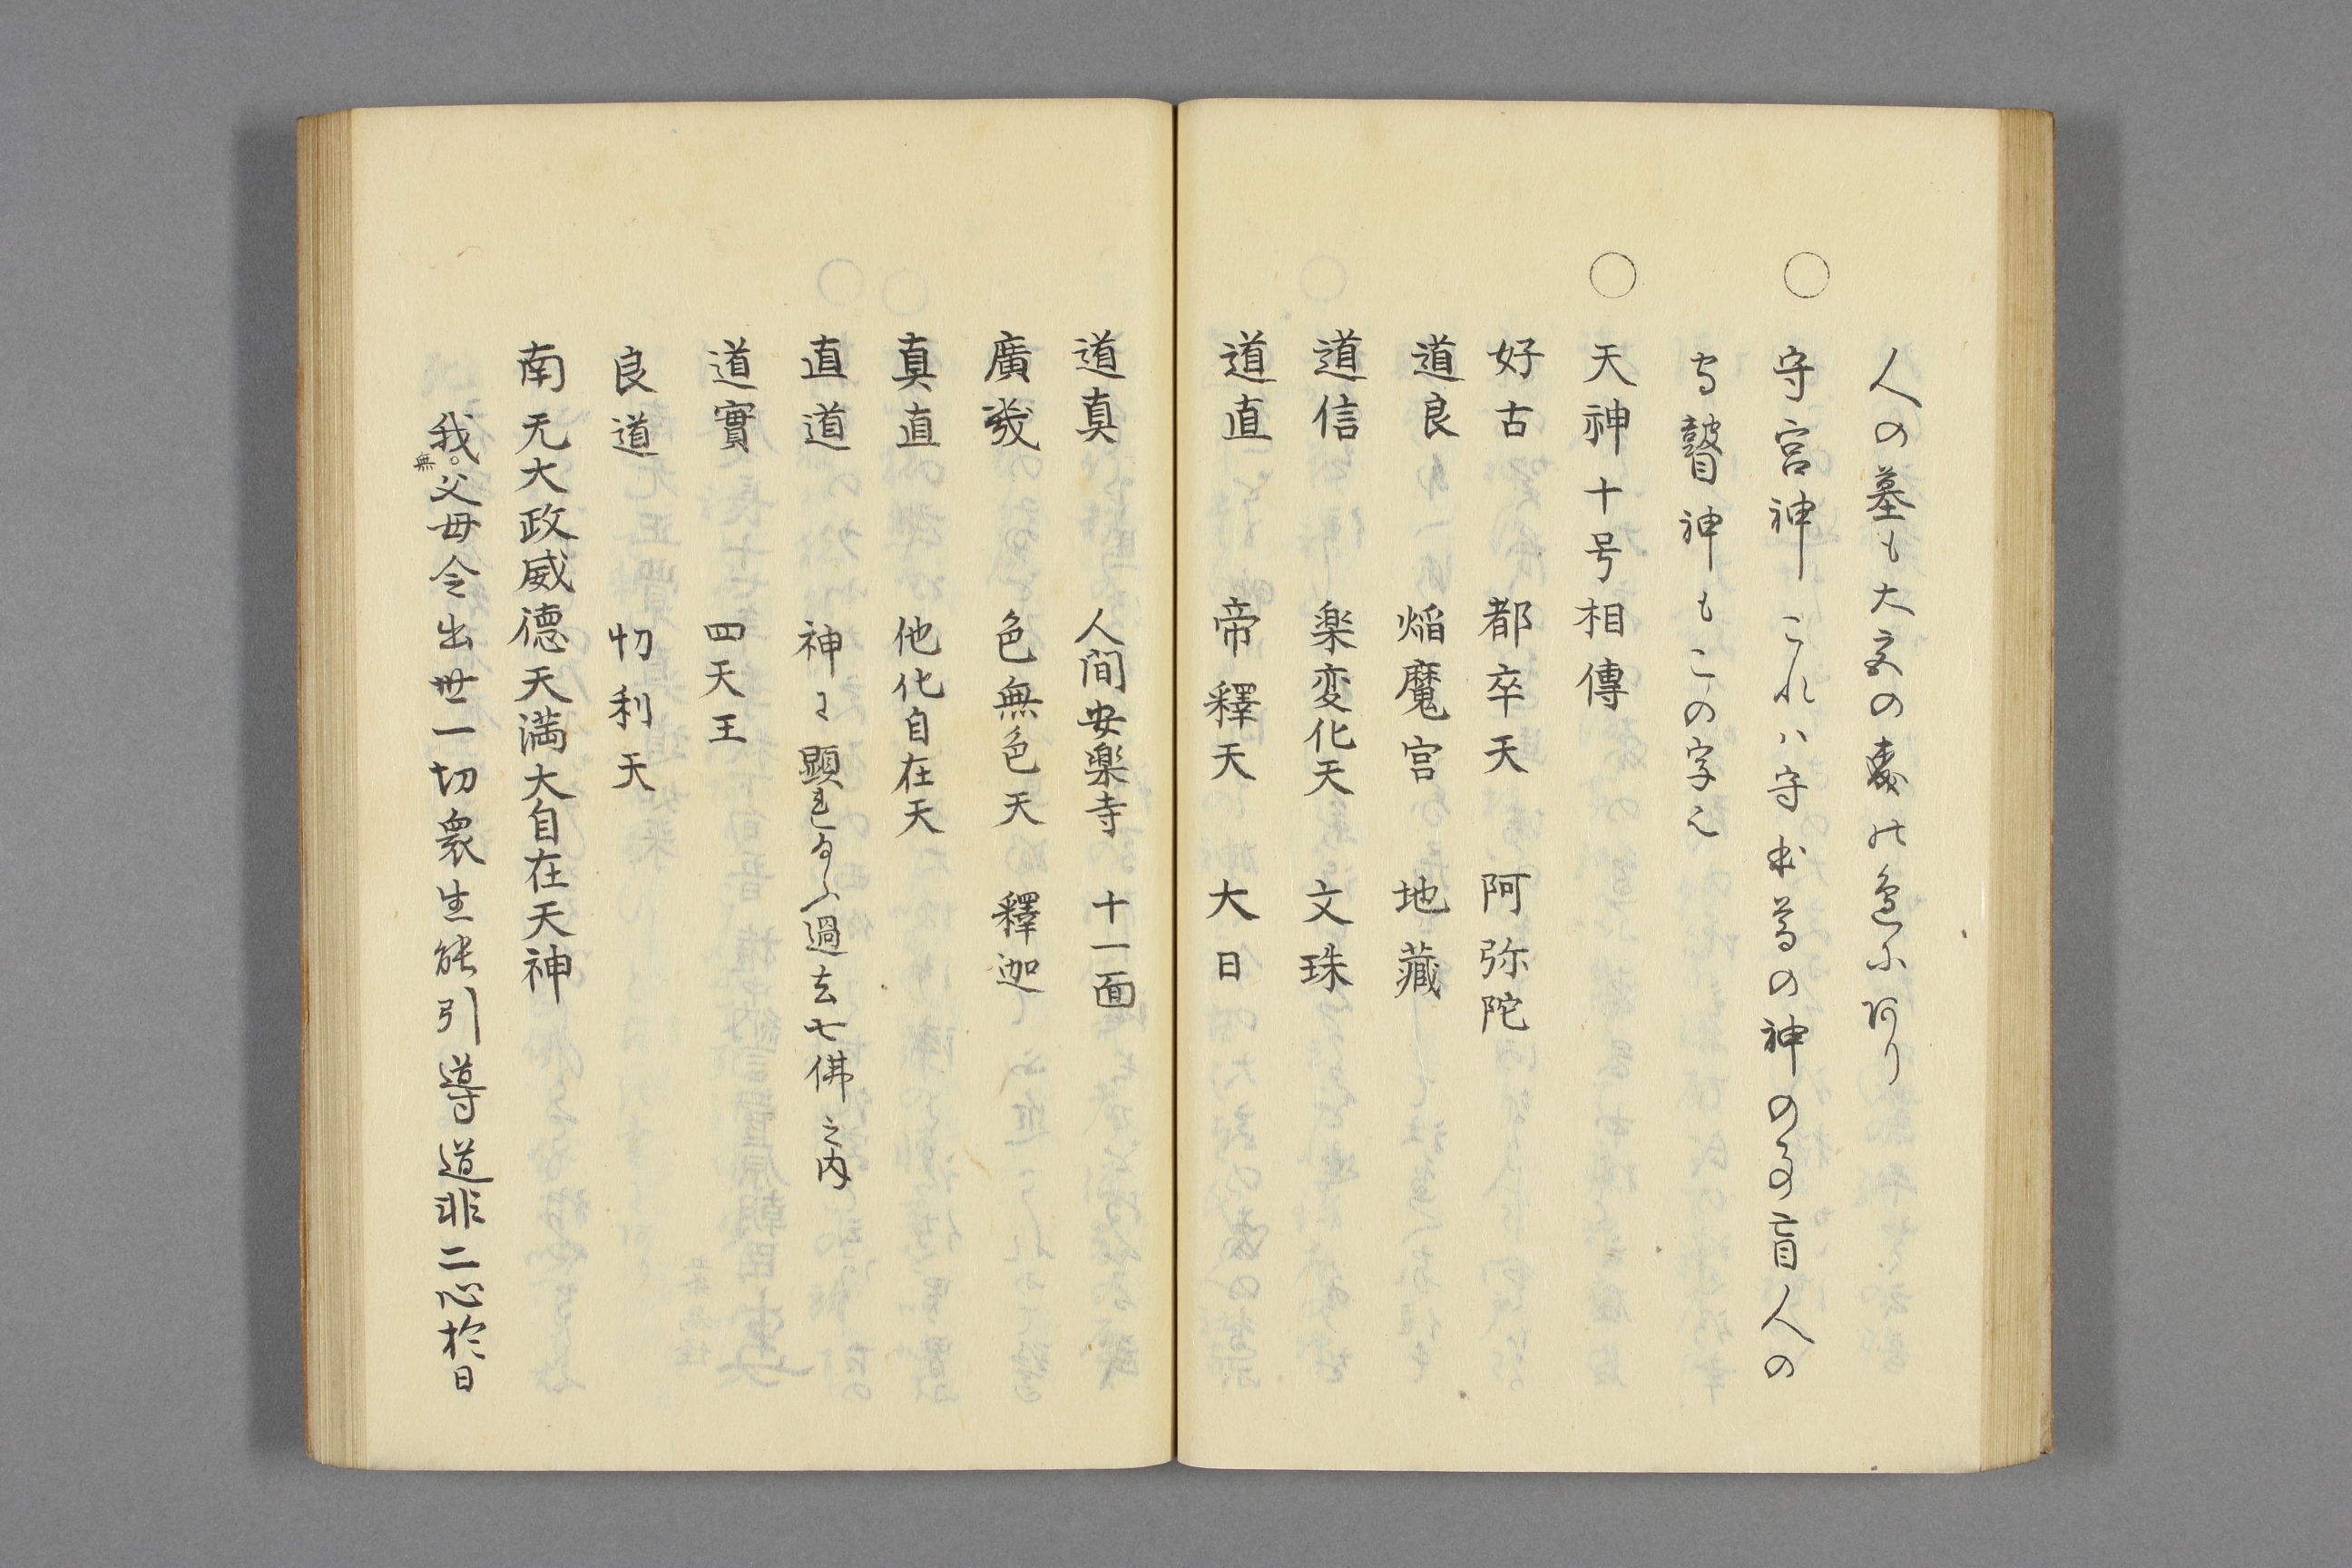 人の墓も大文の東の邉にあり
○ 守宮神 これハ守 尊の神の 盲人の
 瞽神もこの字也
○ 天神十号相傳
好古 都卒天 阿弥陀
道良 焔魔宮 地藏
道信 楽変化天 文珠
道直 帝釋天 大日
道真 人間安楽寺 十一面
廣幾 色無色天 釋迦
真直 他化自在天
直道 神ニ顕 過去七佛之内
道實 四天王
良道 忉利天
南无大政威德天満大自在天神
我無父母令出世一切衆生能引導道非二心於日